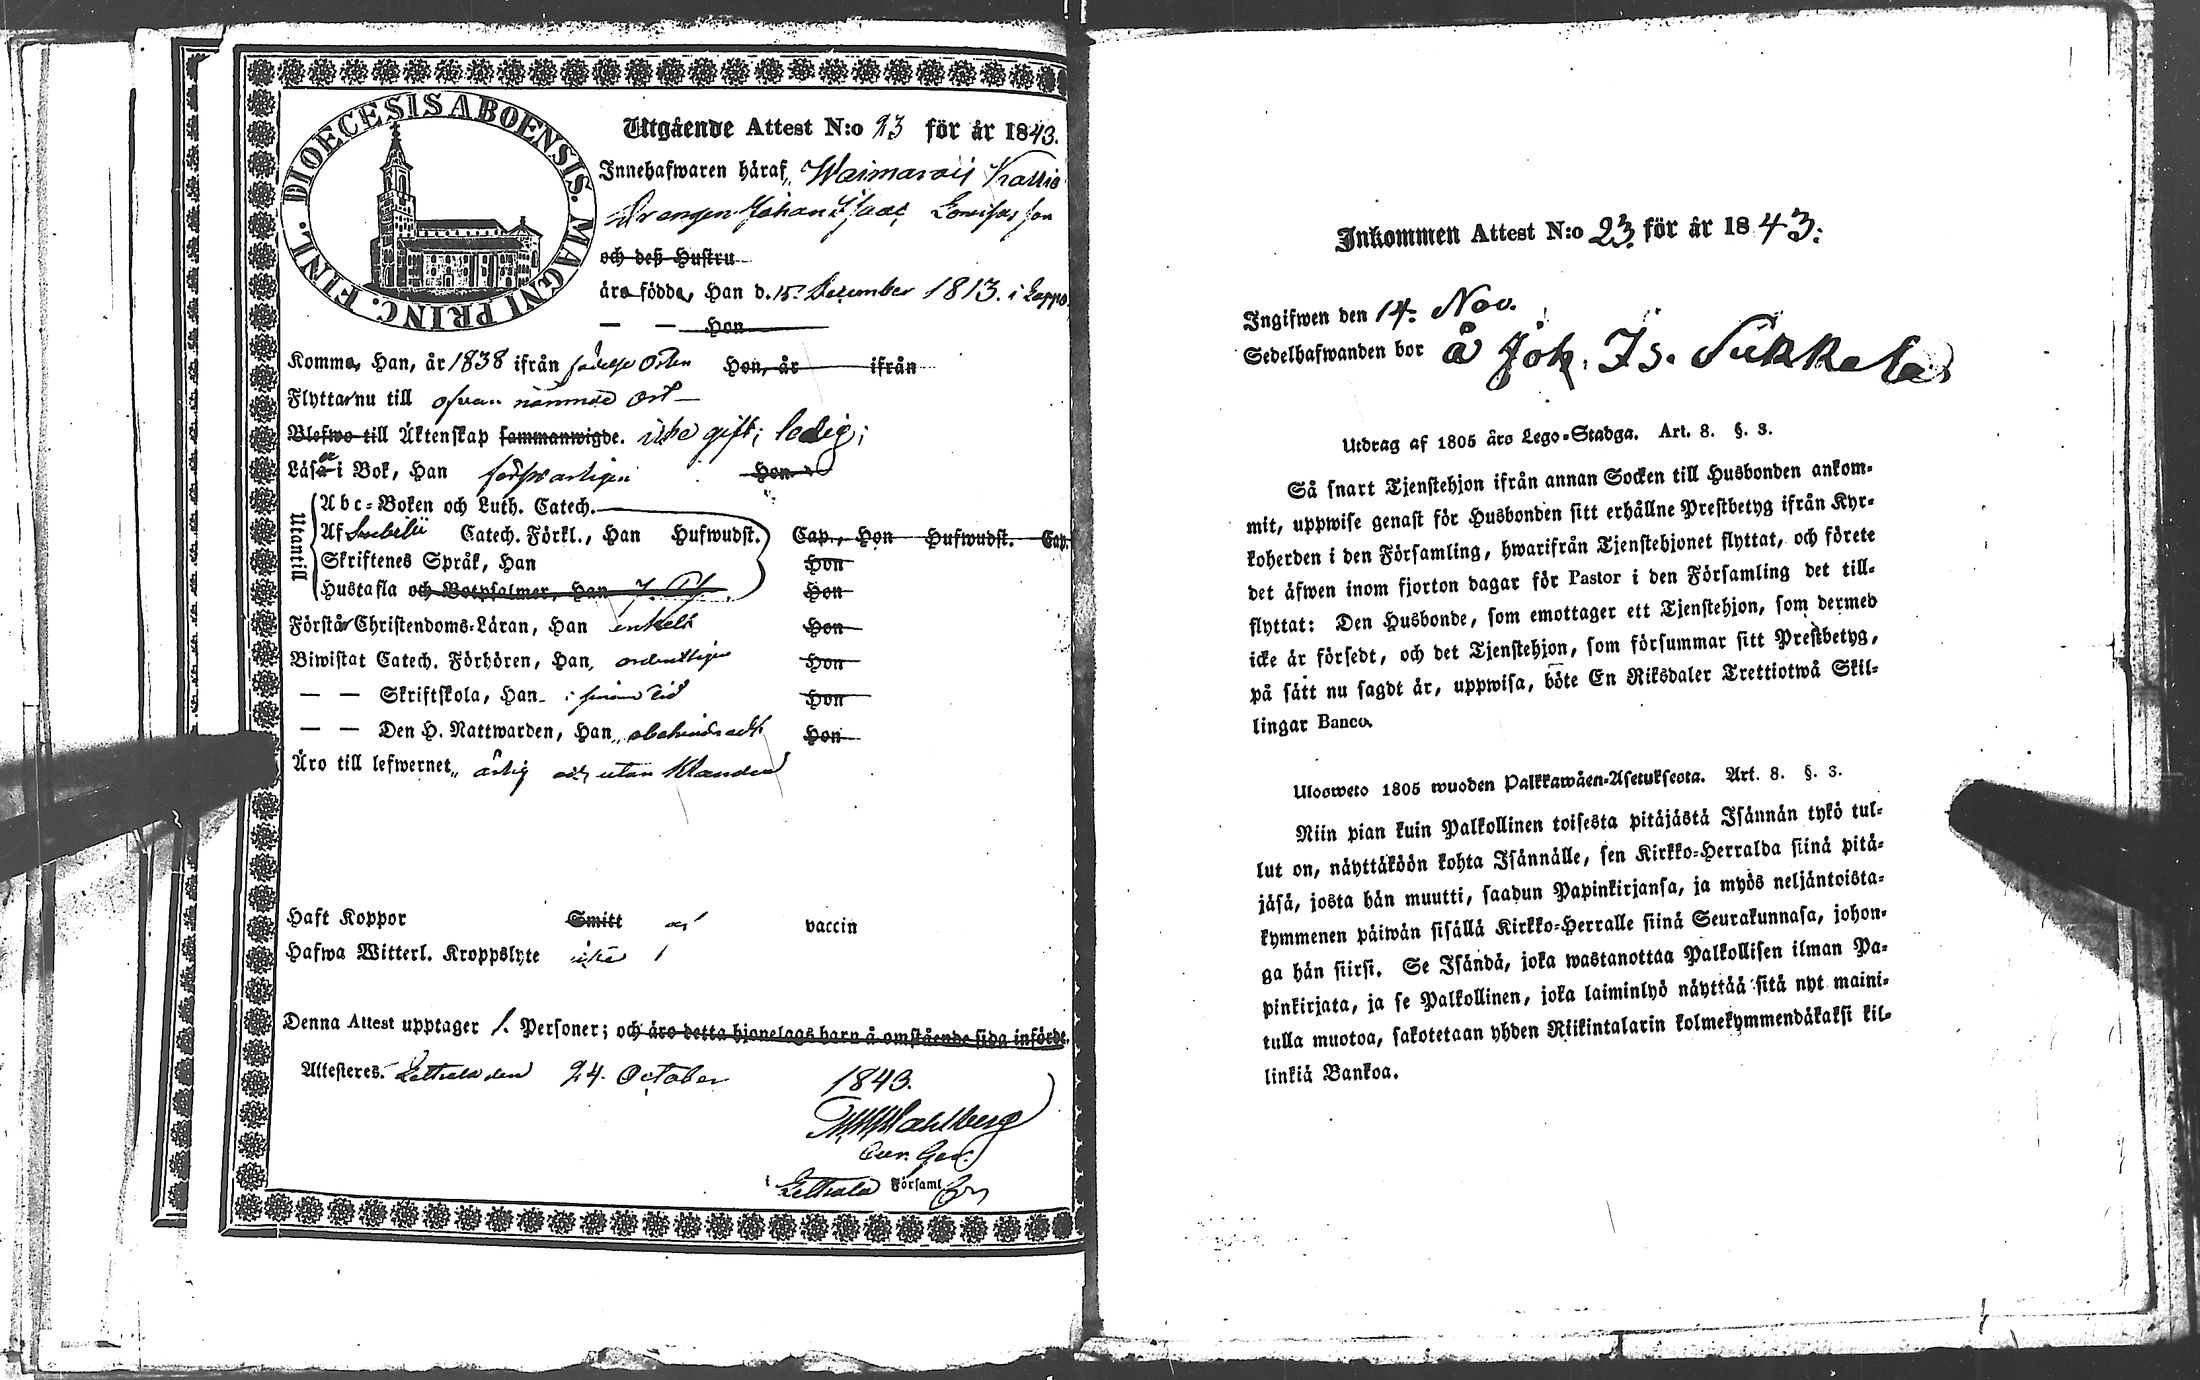 DIOECESIS ABOENSIS. MAGNI PRINC. FINL.
Utgående Attest N:o 23 för år 1843.
Innehafwaren häraf,
Drengen Johan Isaac
och deß Hustru
äro födde, Han d. 15 December 1813. i Lappo
— — Hon
Komme, Han, år 1838 ifrån födelse Orten Hon, år ifrån
Flytta nu till ofvan nämnde Ort —
Blefwo till Äktenskap sammanwigde. icke gift; ledig;
Läsa i Bok, Han försvarligen Hon
Utantill
Abc-Boken och Luth. Catech.
Af Svebelii Catech. Förkl., Han Hufwudst. Cap., Hon Hufwudst. Cap.
Skriftenes Språk, Han Hon
Hustafla och Botpsalmer, Han 7. Hon
Förstå Christendoms-Läran, Han enkelt Hon
Biwistat Catech. Förhören, Han, ordentligen Hon
— — Skriftskola, Han i sinom tid Hon
— — Den H. Nattwarden, Han, obehindradt Hon
Äro till lefwernet, ärlig och utan klander
Haft Koppor Smitt vaccin
Hafwa Witterl. Kroppslyte icke
Denna Attest upptager 1. Personer; och äro detta hjonelags barn å omstående sida införde.
Attesteres. Letala den 24. October 1843.
Wahlberg
i Letala Församl.
Inkommen Attest N:o 23. för år 1843.
Ingifwen den 14. Nov.
Sedelhafwanden bor å Joh. Is. Sukkela
Utdrag af 1805 års Lego-Stadga. Art. 8. §. 3.
Så snart Tjenstehjon ifrån annan Socken till Husbonden ankom-
mit, uppwise genast för Husbonden sitt erhållne Prestbetyg ifrån Kyr-
koherden i den Församling, hwarifrån Tjenstehjonet flyttat, och förete
det äfwen inom fjorton dagar för Pastor i den Församling det till-
flyttat: Den Husbonde, som emottager ett Tjenstehjon, som dermed
icke är försedt, och det Tjenstehjon, som försummar sitt Prestbetyg,
på sätt nu sagdt är, uppwisa, böte En Riksdaler Trettiotwå Skil-
lingar Banco.
Ulosweto 1805 wuoden Palkkawäen-Asetuksesta. Art. 8. §. 3.
Niin pian kuin Palkollinen toisesta pitäjästä Isännän tykö tul-
lut on, näyttäköön kohta Isännälle, sen Kirkko-Herralda siinä pitä-
jäsä, josta hän muutti, saadun Papinkirjansa, ja myös neljäntoista-
kymmenen päiwän sisällä Kirkko-Herralle siinä Seurakunnasa, johon-
ga hän siirsi. Se Isändä, joka wastanottaa Palkollisen ilman Pa-
pinkirjata, ja se Palkollinen, joka laiminlyö näyttää sitä nyt maini-
tulla muotoa, sakotetaan yhden Riikintalarin kolmekymmendäkaksi kil-
linkiä Bankoa.